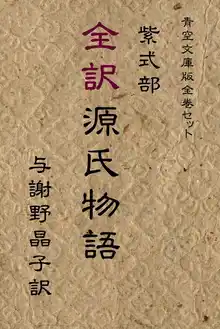 青空文庫版全巻セット
紫式部
全訳源氏物語
与謝野晶子訳